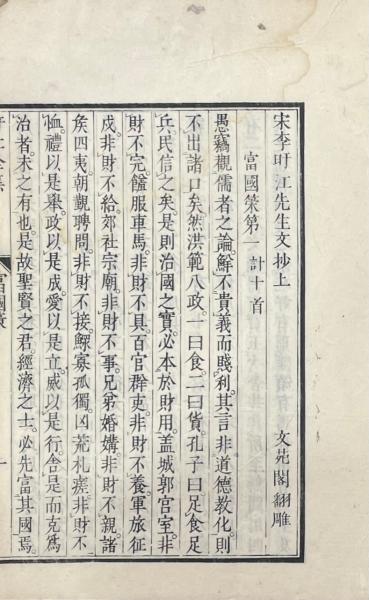 宋李旴江先生文抄上
文苑閣翻雕
富國策第一 計十首
愚竊觀儒者之論鮮不貴義而賤利其言非道德教化則
不出諸口矣然洪範八政一曰食二曰貨孔子曰足食足
兵民信之矣是則治國之實必本於財用蓋城郭宮室非
財不完饈服車馬非財不具百官群吏非財不養軍旅征
戍非財不給郊社宗廟非財不事兄弟婚媾非財不親諸
矦四夷朝覲聘問非財不接鰥寡孤獨凶荒札瘥非財不
恤禮以是舉政以是成愛以是立威以是行舍是而克為
治者未之有也是故聖賢之君經濟之士必先富其國焉